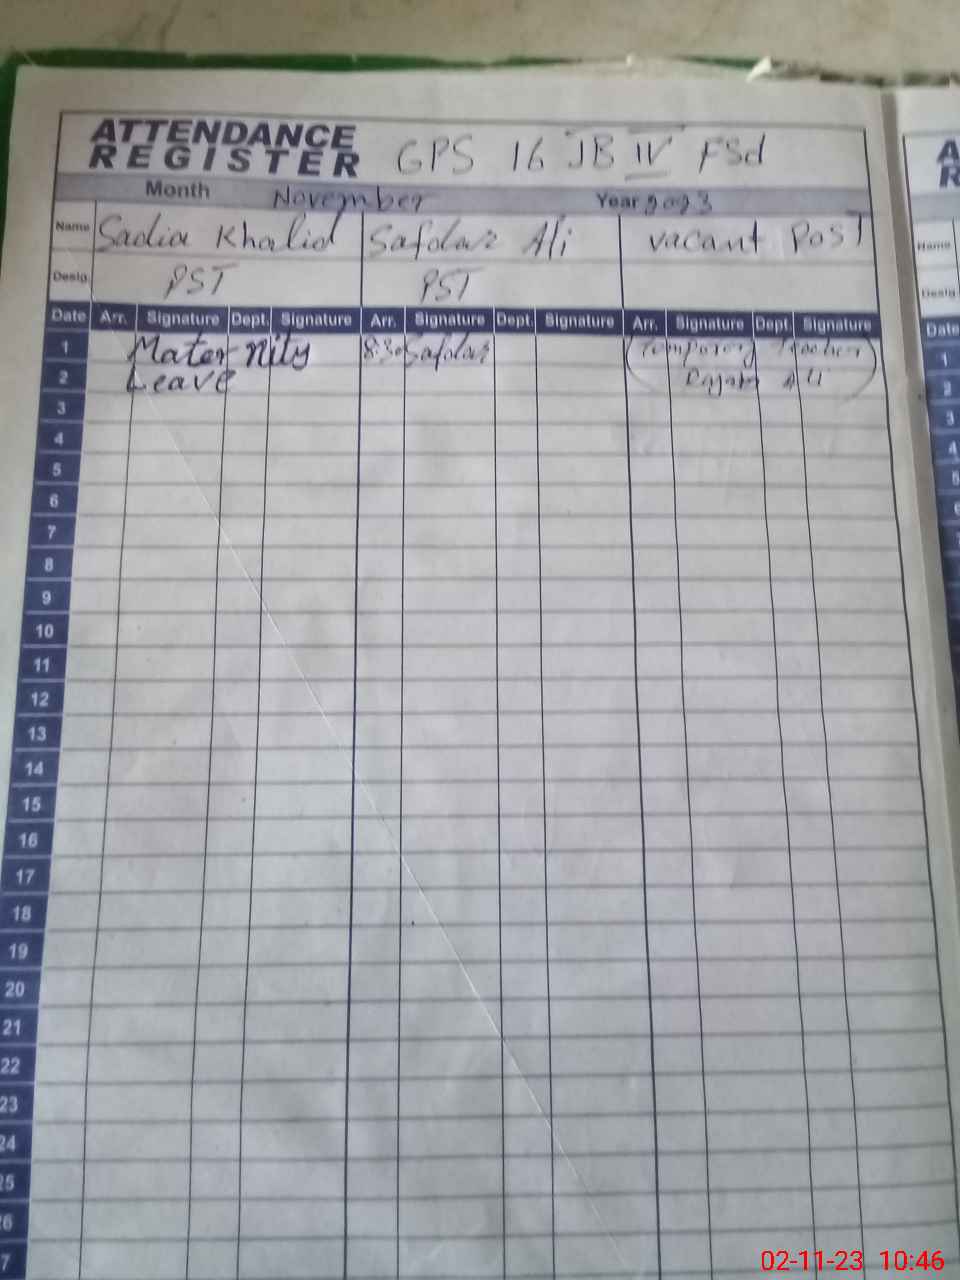 ATTENDANCE
REGISTER GPS 16 JB IV FSd
Month November Year 2023
Name Sadia Khalid Safdar Ali vacant Post
Desig. PST PST
Date Arr. Signature Dept. Signature Arr. Signature Dept. Signature Arr. Signature Dept. Signature
1 Maternity 8:30 Safdar (Temporery Teacher
2 Leave Ali)
3
4
5
6
7
8
9
10
11
12
13
14
15
16
17
18
19
20
21
22
23
24
25
26
7
A
R
Name
Desig.
Date
1
2
3
4
5
6
02-11-23 10:46